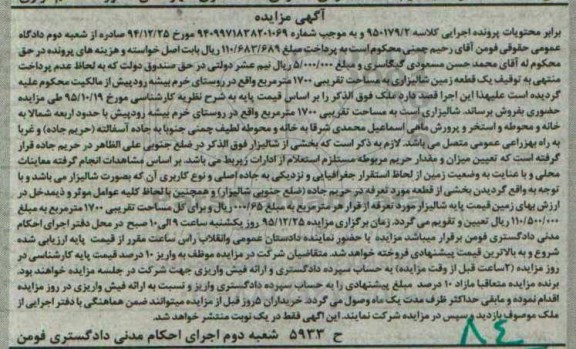 آگهی مزایده
برابر محتویات پرونده اجرایی کلاسه ۹۵۰۱۷۹/۲ و به موجب شماره ۹۴۰۹۹۷۱۸۳۸۲۰۱۰۶۹ مورخ ۹۴/۱۲/۲۵ صادره از شعبه دوم دادگاه
عمومی حقوقی فومن آقای رحیم چمنی محکوم است به پرداخت مبلغ ۱۱۰/۶۸۳/۶۸۹ ریال بابت اصل خواسته و هزینه های پرونده در حق
محکوم له آقای محمد حسن مسعودی گیگاسری و مبلغ ۵/۰۰۰/۰۰۰ ریال نیم عشر دولتی در حق صندوق دولت که به لحاظ عدم پرداخت
منتهی به توقیف یک قطعه زمین شالیزاری به مساحت تقریبی ۱۷۰۰ مترمربع واقع در روستای خرم بیشه رودپیش از مالکیت محکوم علیه
گردیده است علیهذا این اجرا قصد دارد ملک فوق الذکر را بر اساس قیمت پایه به شرح نظریه کارشناسی مورخ ۹۵/۱۰/۱۹ طی مزایده
حضوری بفروش برساند. شالیزاری است به مساحت تقریبی ۱۷۰۰ مترمربع واقع در روستای خرم بیشه رودپیش با حدود اربعه شمالا به
خانه و محوطه و استخر و پرورش ماهی اسماعیل محمدی شرقا به خانه و محوطه لطیف چمنی جنوبا به جاده آسفالته (حریم جاده) و غربا
به راه بهزراعی عمومی متصل می باشد. لازم به ذکر است که بخشی از شالیزار فوق الذکر در ضلع جنوبی علی الظاهر در حریم جاده قرار
گرفته است که تعیین میزان و مقدار حریم مربوطه مستلزم استعلام از ادارات زیربط می باشد. بر اساس مشاهدات انجام گرفته معاینات
محلی و با عنایت به وضعیت زمین از لحاظ استقرار جغرافیایی و نزدیکی به جاده اصلی و نوع کاربری آن که بصورت شالیزار می باشد و با
توجه به واقع گردیدن بخشی از قطعه مورد تعرفه در حریم جاده (ضلع جنوبی شالیزار) و همچنین با لحاظ کلیه عوامل موثر و ذیمدخل در
ارزش بهای زمین قیمت پایه شالیزار مورد تعرفه از قرار هر مترمربع به مبلغ ۶۵/۰۰۰ ریال و برای کل مساحت تقریبی ۱۷۰۰ مترمربع به مبلغ
۱۱۰/۵۰۰/۰۰۰ ریال تعیین و تقویم می گردد. زمان برگزاری مزایده ۹۵/۱۲/۲۵ روز یکشنبه ساعت ۹ الی ۱۰ صبح در محل دفتر اجرای احکام
مدنی دادگستری فومن برقرار میباشد مزایده با حضور نماینده دادستان عمومی وانقلاب راس ساعت مقرر از قیمت پایه ارزیابی شده
شروع و به بالاترین قیمت پیشنهادی فروخته خواهد شد. متقاضیان شرکت در مزایده موظف به واریز ۱۰ درصد قیمت پایه کارشناسی در
روز مزایده (۲ساعت قبل از وقت مزایده) به حساب سپرده دادگستری و ارائه فیش واریزی جهت شرکت در جلسه مزایده خواهند بود.
برنده مزایده متعاقبا مازاد ۱۰ درصد مبلغ پیشنهادی را به حساب سپرده دادگستری واریز و نسبت به ارائه فیش واریزی در روز مزایده
اقدام نموده و مابقی حداکثر ظرف مدت یک ماه وصول می گردد. خریداران ۵ روز قبل از مزایده میتوانند ضمن هماهنگی با دفتر اجرایی از
ملک موصوف بازدید و سپس در مزایده شرکت نمایند. این آگهی فقط در یک نوبت منتشر خواهد شد.
ح ۵۹۳۳ شعبه دوم اجرای احکام مدنی دادگستری فومن
۸۴